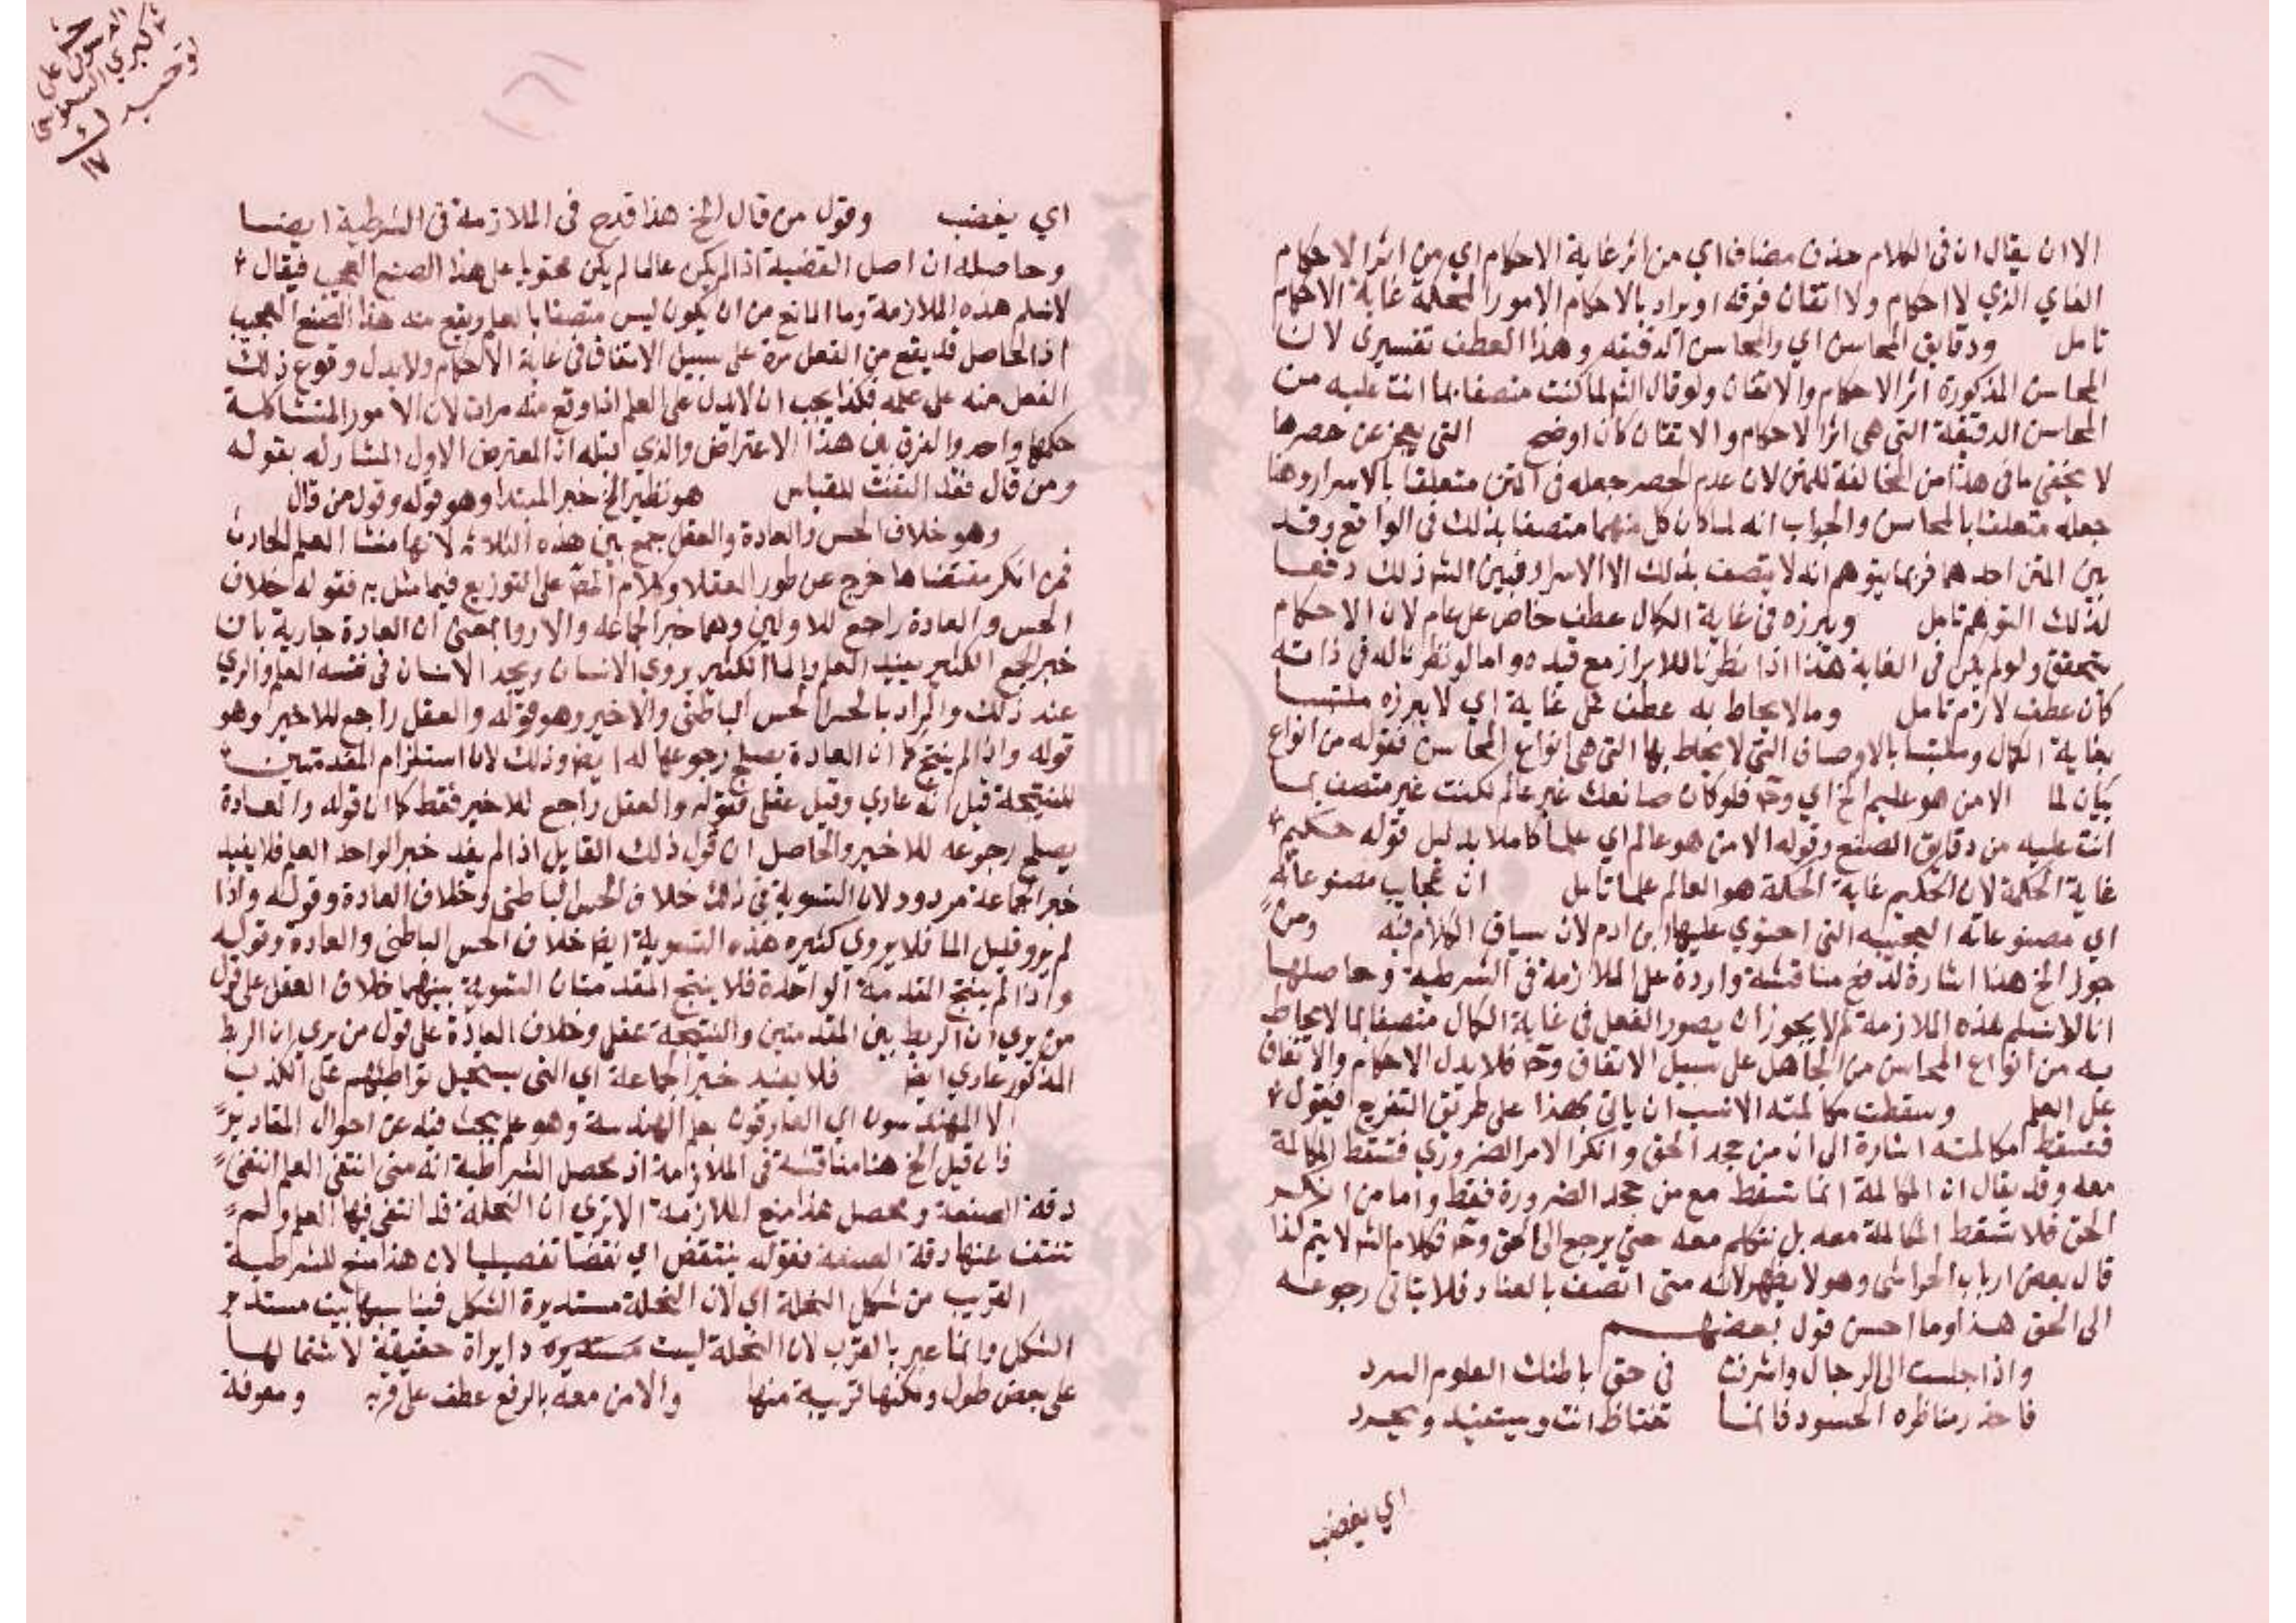 الا ان يقال ان في الكلام حذف مضاف اي من اثر غاية الاحكام اي من اثر الاحكام
الغاي الذي لا احكام ولا اتقان فوقه او يراد بالاحكام الامور المحكمة غاية الاحكام
تامل ودقايق المحاسن اي والمحاسن الدقيقه وهذا العطف تفسيرى لان
المحاسن المذكورة اثر الاحكام والاتقان ولو قال الش لما كنت متصفا بما انت عليه من
المحاسن الدقيقة التى هى اثر الاحكام والاتقان كان اوضح التى يعجز عن حصرها
لا يخفى ما فى هذا من المخالفة للمتن لان عدم الحصر جعله فى المتن متعلقا بالاسرار وهنا
جعله متعلقا بالمحاسن والجواب انه لما كان كل منهما متصفا بذلك فى الواقع وقد
بين المتن احدهما فربما يتوهم انه لا يتصف بذلك الا الاسرار فبين الش ذلك دفعا
لذلك التوهم تامل ويبرزه فى غاية الكمال عطف خاص على عام لان الاحكام
يتحقق ولو لم يكن فى الغاية هذا اذا نظرنا للابراز مع قيده واما لو نظرنا له فى ذاته
كان عطف لازم تامل وما لا يحاط به عطف على غاية اي لا يبرزه ملتبسا
بغاية الكمال وملتبسا بالاوصاف التى لا يحاط بها التى هى انواع المحاسن فقوله من انواع
بيان لما الا من هو عليم الخ اي وح فلو كان صانعك غير عالم لكنت غير متصف بما
انت عليه من دقايق الصنع وقوله الا من هو عالم اي علما كاملا بدليل قوله حكيم
غاية الحكمة لان الحكيم غاية الحكمة هو العالم علما تامل ان عجايب مصنوعاته
اي مصنوعاته العجيبه التى احتوي عليها ابن ادم لان سياق الكلام فيه ومن
جوز الخ هذا اشارة لدفع مناقشة واردة على الملازمة فى الشرطية وحاصلها
انا لا نسلم هذه الملازمة لم لا يجوز ان يصور الفعل فى غاية الكمال متصفا بما لا يحاط
به من انواع المحاسن من الجاهل على سبيل الاتفاق وح فلا يدل الاحكام والاتقان
على العلم وسقطت مكالمته الانسب ان ياتى بهذا على طريق التفريع فيقول
فتسقط مكالمته اشارة الى ان من جحد الحق وانكر الامر الضروري فتسقط المكالمة
معه وقد يقال ان المكالمة انما تسقط مع من جحد الضرورة فقط واما من انكر
الحق فلا تسقط المكالمة معه بل نتكلم معه حتى يرجع الى الحق وح فكلام الش لا يتم كذا
قال بعض ارباب الحواشى وهو لا يظهر لانه متى اتصف بالعناد فلا يتاتى رجوعه
الى الحق هذا وما احسن قول بعضهم
واذا جلست الى الرجال واشرقت فى حق باطنك العلوم الشرد
فاحذر مناظره الحسود فانما تغتاظ انت ويستفيد ويجرد
اي يغضب
اي يغضب وقول من قال الخ هذا قدح فى الملازمة فى الشرطية ايضا
وحاصله ان اصل القضية اذ لم يكن عالما لم يكن محتويا على هذا الصنع العجيب فيقال
لا نسلم هذه الملازمة وما المانع من ان يكون ليس متصفا بالعلم ويقع منه هذا الصنع العجيب
اذ الحاصل قد يقع من الفعل مرة على سبيل الاتفاق فى غاية الاحكام ولا يدل وقوع ذلك
الفعل منه على علمه فكذا يجب ان لا يدل على العلم اذا وقع منه مرات لان الامور المتشاكلة
حكمها واحد والفرق بين هذا الاعتراض والذي قبله ان المعترض الاول المشار له بقوله
ومن قال فقد التفت للقياس هو نظير الخ خبر المبتدا وهو قوله وقول من قال
وهو خلاف الحس والعادة والعقل جمع بين هذه الثلاثه لانها منشا العلم الحادث
فمن انكر مقتضاها خرج عن طور العقلا وكلام المص على التوزيع فيما مثل به فقوله خلاف
الحس والعادة راجع للاولين وهما خبر الجماعه والاروا بمعنى ان العادة جارية بان
خبر الجمع الكثير يفيد العلم والما الكثير يروى الانسان ويجد الانسان فى نفسه العلم والري
عند ذلك والمراد بالحس الحس الباطنى والاخير وهو قوله والعقل راجع للاخير وهو
قوله واذا لم ينتج كما ان العادة يصلح رجوعها له ايضا وذلك لان استلزام المقدمتين
للنتيجة قيل انه عادي وقيل عقلى فقوله والعقل راجع للاخير فقط كما ان قوله والعادة
يصلح رجوعه للاخير والحاصل ان قول ذلك القايل اذا لم يفد خبر الواحد العلم فلا يفيد
خبر الجماعة مردود لان التسوية فى ذلك خلاف الحس الباطنى وخلاف العادة وقوله واذا
لم يرو قليل الما فلا يروي كثيره هذه التسوية ايضا خلاف الحس الباطنى والعادة وقوله
واذا لم ينتج المقدمة الواحدة فلا ينتج المقدمتان التسوية بينهما خلاف العقل على قول
من يري ان الربط بين المقدمتين والنتيجة عقلى وخلاف العادة على قول من يري ان الربط
المذكور عادي ايضا فلا يفيد خبر الجماعة اي التى يستحيل تواطئهم على الكذب
الا المهندسون اي العارفون بعلم الهندسة وهو علم يبحث فيه عن احوال المقادير
فان قيل الخ هنا مناقشة فى الملازمة اذ محصل الشرطية انه متى انتفى العلم انتفى
دقة الصنعة ومحصل هذا منع الملازمة الا تري ان النحلة قد انتفى فيها العلم ولم
تنتف عنها دقة الصنعة فقوله ينتقض اي نقضا تفصيليا لان هذا منع للشرطية
القريب من شكل النحلة اي لان النحلة مستديرة الشكل فيناسبها بيت مستدير
الشكل وانما عبر بالقرب لان النحلة ليست مستديره دايراة حقيقية لاشتمالها
على بعض طول ولكنها قريبة منها والامن معه بالرفع عطف على قربه ومعرفة